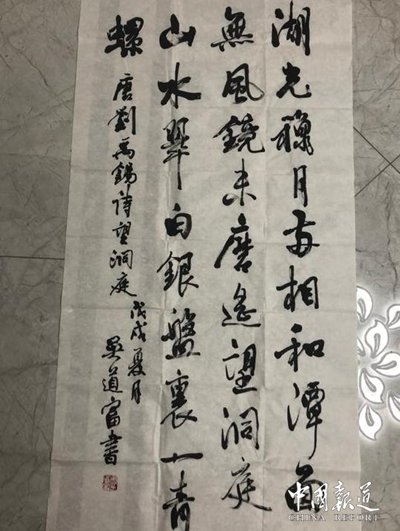 湖光穐月両相和潭面
無風鏡未磨遙望洞庭
山水翠白銀盤裏一青
螺 唐劉禹錫詩望洞庭 戊戌夏月
吳道富書
中國報道
CHINA REPORT